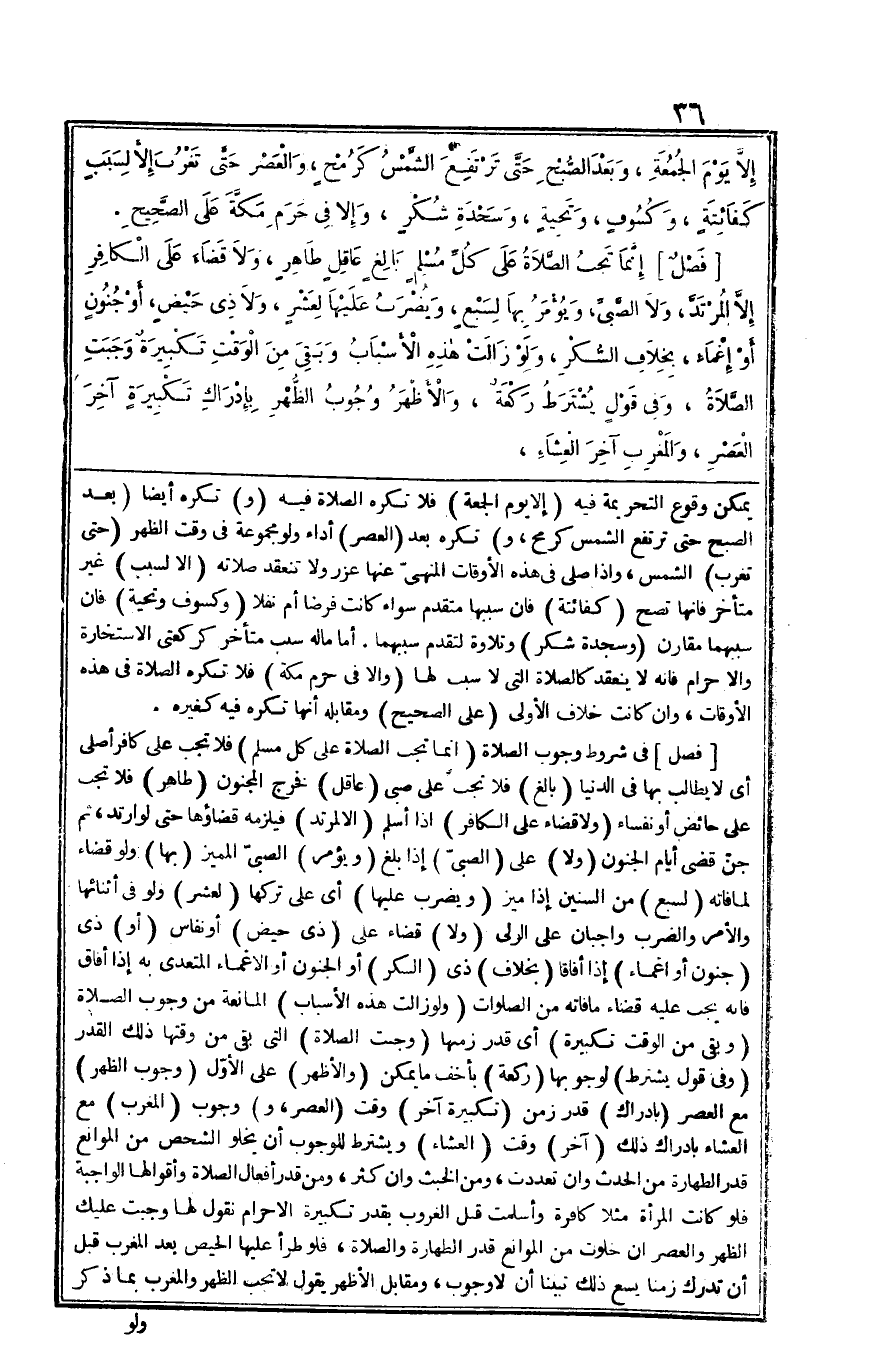 ٣٦
إِلاَّ يَوْمَ الجُمُعَةِ ، وَبَعْدَ الصُّبْحِ حَتَّى تَرْتَفِعَ الشَّمْسُ كَرُمْحٍ ، وَالْعَصْرِ حَتَّى تَغْرُبَ إِلاَّ لِسَبَبٍ
كَفَائِتَةٍ ، وَكُسُوفٍ ، وَتَحِيةٍ ، وَسَجْدَةِ شُكْرٍ ، وَإِلا فِى حَرَمِ مَكَّةَ عَلَى الصَّحِيحِ .
[ فَصْلٌ ] إِنَّمَا تَجِبُ الصَّلاَةُ عَلَى كُلِّ مُسْلِمٍ بَالِغٍ عَاقِلٍ طَاهِرٍ ، وَلاَ قَضَاءَ عَلَى الْكَافِرِ
إِلاَّ الْمُرْتَدَّ ، وَلاَ الصَّبِىِّ ، وَيُؤْمَرُ بِهَا لِسَبْعٍ ، وَيُضْرَبُ عَلَيْهَا لِعَشْرٍ ، وَلاَ ذِى حَيْضٍ ، أَوْ جُنُونٍ
أَوْ إِغْمَاءٍ ، بِخِلاَفِ السُّكْرِ ، وَلَوْ زَالَتْ هٰذِهِ الْأَسْبَابُ وَبَقِىَ مِنَ الْوَقْتِ تَكْبِيرَةٌ وَجَبَتِ
الصَّلاَةُ ، وَفِى قَوْلٍ يُشْتَرَطُ رَكْعَةٌ ، وَالْأَظْهَرُ وُجُوبُ الظُّهْرِ بِإِدْرَاكِ تَكْبِيرَةٍ آخِرَ
الْعَصْرِ ، وَالمَغْرِبِ آخِرَ الْعِشَاءِ ،
يمكن وقوع التحريمة فيه ( إلا يوم الجمعة ) فلا تكره الصلاة فيه ( و ) تكره أيضا ( بعد
الصبح حتى ترتفع الشمس كرمح ، و ) تكره بعد ( العصر ) أداء ولو مجموعة فى وقت الظهر ( حتى
تغرب ) الشمس ، واذا صلى فى هذه الأوقات المنهىّ عنها عزر ولا تنعقد صلاته ( الا لسبب ) غير
متأخر فانها تصح ( كفائتة ) فان سببها متقدم سواء كانت فرضا أم نفلا ( وكسوف وتحية ) فان
سببهما مقارن ( وسجدة شكر ) وتلاوة لتقدم سببهما . أما ماله سبب متأخر كركعتى الاستخارة
والاحرام فانه لا ينعقد كالصلاة التى لا سبب لها ( والا فى حرم مكة ) فلا تكره الصلاة فى هذه
الأوقات ، وان كانت خلاف الأولى ( على الصحيح ) ومقابله أنها تكره فيه كغيره .
[ فصل ] فى شروط وجوب الصلاة ( انما تجب الصلاة على كل مسلم ) فلا تجب على كافر أصلى
أى لا يطالب بها فى الدنيا ( بالغ ) فلا تجب على صبى ( عاقل ) فخرج المجنون ( طاهر ) فلا تجب
على حائض أو نفساء ( ولا قضاء على الكافر ) اذا أسلم ( الا المرتد ) فيلزمه قضاؤها حتى لو ارتد ، ثم
جنّ قضى أيام الجنون ( ولا ) على ( الصبىّ ) إذا بلغ ( ويؤمر ) الصبىّ المميز ( بها ) ولو قضاء
لما فاته ( لسبع ) من السنين إذا ميز ( ويضرب عليها ) أى على تركها ( لعشر ) ولو فى أثنائها
والأمر والضرب واجبان على الولى ( ولا ) قضاء على ( ذى حيض ) أو نفاس ( أو ) ذى
( جنون أو اغماء ) إذا أفاقا ( بخلاف ) ذى ( السكر ) أو الجنون أو الاغماء المتعدى به إذا أفاق
فانه يجب عليه قضاء ما فاته من الصلوات ( ولو زالت هذه الأسباب ) المانعة من وجوب الصلاة
( وبقى من الوقت تكبيرة ) أى قدر زمنها ( وجبت الصلاة ) التى بقى من وقتها ذلك القدر
( وفى قول يشترط ) لوجوبها ( ركعة ) بأخف ما يمكن ( والأظهر ) على الأوّل ( وجوب الظهر )
مع العصر ( بادراك ) قدر زمن ( تكبيرة آخر ) وقت ( العصر ، و ) وجوب ( المغرب ) مع
العشاء بادراك ذلك ( آخر ) وقت ( العشاء ) ويشترط للوجوب أن يخلو الشخص من الموانع
قدر الطهارة من الحدث وان تعددت ، ومن الخبث وان كثر ، ومن قدر أفعال الصلاة وأقوالها الواجبة
فلو كانت المرأة مثلا كافرة وأسلمت قبل الغروب بقدر تكبيرة الاحرام نقول لها وجبت عليك
الظهر والعصر ان خلوت من الموانع قدر الطهارة والصلاة ، فلو طرأ عليها الحيض بعد المغرب قبل
أن تدرك زمنا يسع ذلك تبينا أن لا وجوب ، ومقابل الأظهر يقول لا تجب الظهر والمغرب بما ذكر
ولو